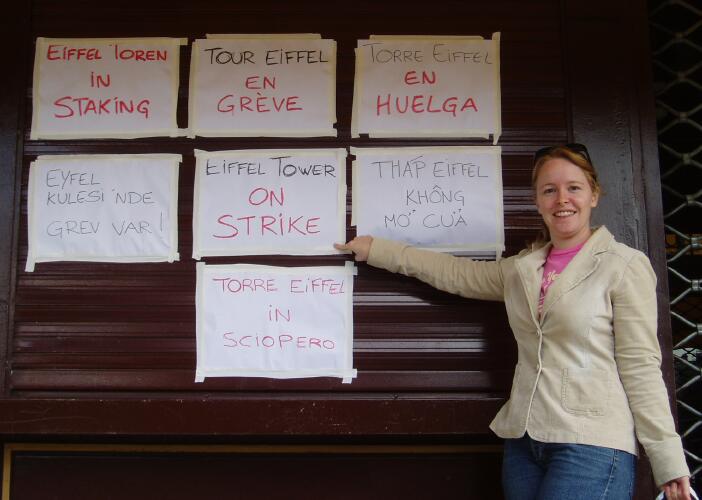 EiFFEL TOREN
iN
STAKiNG
TOUR EiFFEL
EN
GRÈVE
TORRE EiFFEL
EN
HUELGA
EYFEL
KULESi'NDE
GREV VAR!
EiFFEL TOWER
ON
STRiKE
THÁP EIFFEL
KHÔNG
MỞ CỬA
TORRE EiFFEL
iN
SCiOPERO